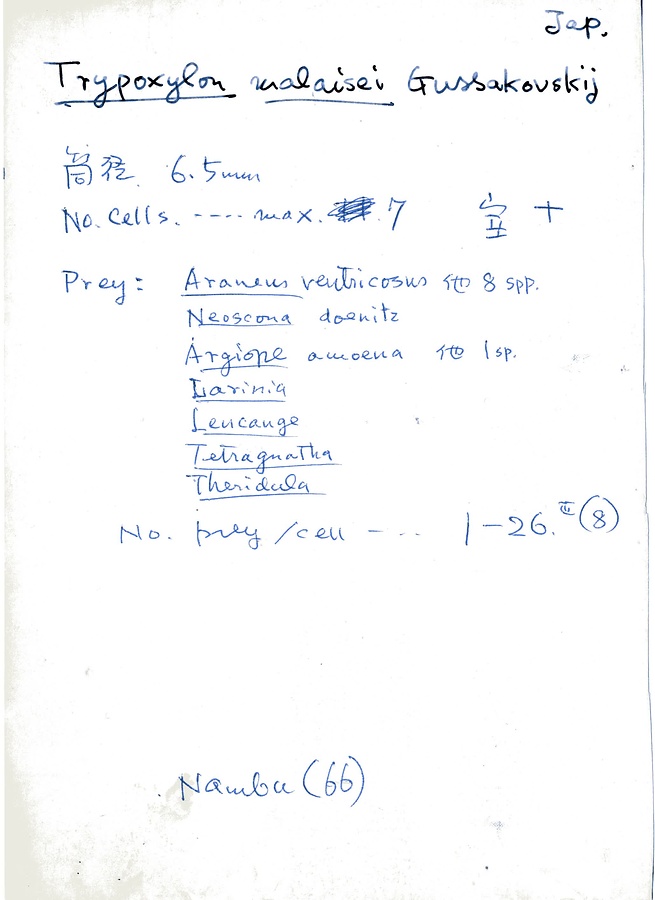 Jap.
Trypoxylon malaisei Gussakovskij
筒径 6.5mm
No. Cells. ---- max. 7 室 +
Prey: Araneus ventricosus 他 8 spp.
Neoscona doenitz
Argiope amoena 他 1 sp.
Larinia
Leucauge
Tetragnatha
Theridula
No. prey /cell --- 1-26. (8)
Nambu (66)